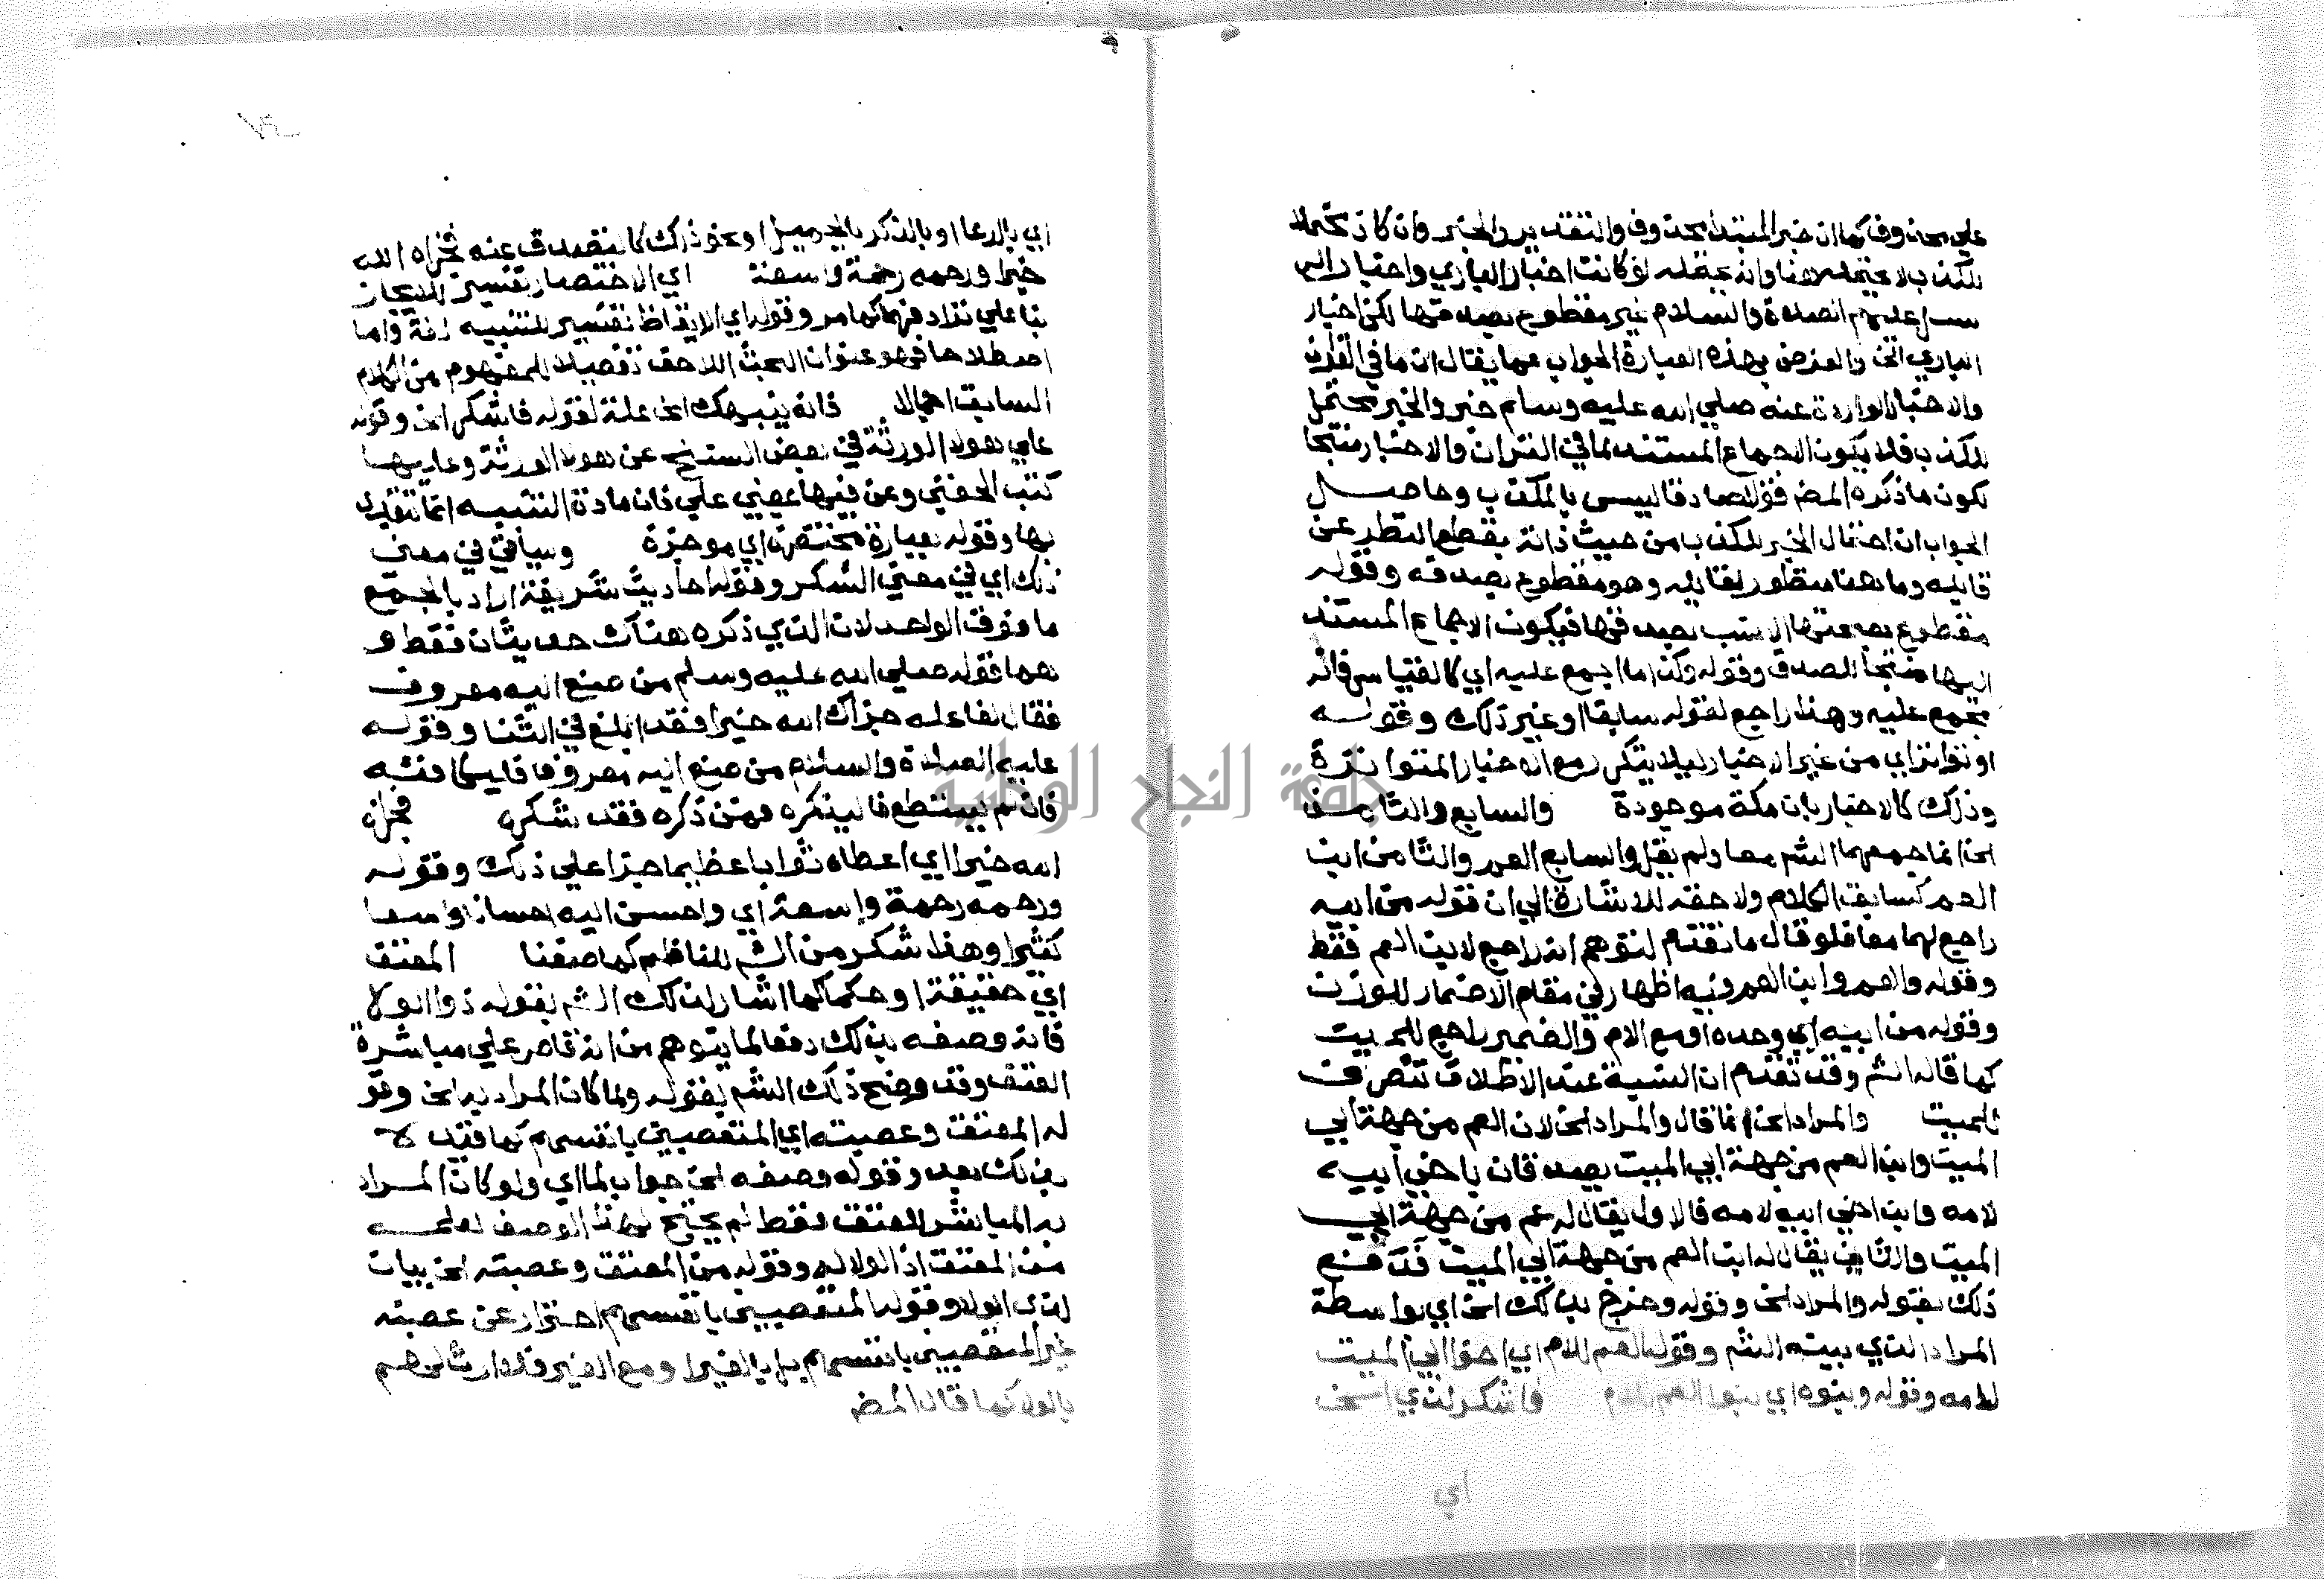 علي محذوف كما ان خبر المبتدا محذوف والتقدير والخبر وان كان محتملا
للكذب لا يحتمله هنا وانه يحتمله لو كانت اخبار الباري واخبار الر
سل عليهم الصلاة والسلام غير مقطوع بصدقها لكن اخبار
الباري الخ والغرض بهذه العبارة الجواب عما يقال ان ما في القران
والاخبار الواردة عنه صلي الله عليه وسلم خبر والخبر محتمل
للكذب فلا يكون الاجماع المستند لما في القران والاخبار منتجا
لكون ما ذكره المض قولا صادقا ليس بالكذب وحاصل
الجواب ان احتمال الخبر للكذب من حيث ذاته بقطع النظر عن
قايله وما هنا منظور لقايله وهو مقطوع بصدقه وقوله
مقطوع بصحتها الانسب بصدقها فيكون الاجماع المستند
اليها منتجا للصدق وقوله وكذا ما اجمع عليه اي كالقياس فانه
مجمع عليه وهذا راجع لقوله سابقا او غير ذلك وقوله
او تواتر اي من غير الاخبار ليلا يتكرر مع الاخبار المتواترة
وذلك كالاخبار بان مكة موجودة والسابع والثامن
الخ انما جمعهما الشم معا ولم يقل والسابع العم والثامن ابن
العم كسابق الكلام ولاحقه للاشارة الي ان قوله من ابيه
راجع لهما معا فلو قال ما تقدم لتوهم انه راجع لابن العم فقط
وقوله والعم وابن العم وفيه اظهار في مقام الاضمار للوزن
وقوله من ابيه اي وحده او مع الام والضمير راجع للميت
كما قاله الشم وقد تقدم ان النسبة عند الاطلاق تنصرف
للميت والمراد الخ انما قال والمراد الخ لان العم من جهة ابي
الميت وابن العم من جهة ابي الميت يصدقان باخي ابيه
لامه وابن اخي ابيه لامه فالاول يقال له عم من جهة ابي
الميت والثاني يقال له ابن العم من جهة ابي الميت فدفع
ذلك بقوله والمراد الخ وقوله وخرج بذلك الخ اي بواسطة
المراد الذي بينه الشم وقوله العم للام اي اخو ابي الميت
لامه وقوله وبنوه اي بنوا العم للام فاشكر لذي الخ
اي
اي بالدعا او بالذكر بالجميل او نحو ذلك كالتصدق عنه فجزاه الله
خيرا ورحمه رحمة واسعة اي الاختصار تفسير للايجاز
بنا علي ترادفهما كما مر وقوله اي الايقاظ تفسير للتنبيه لغة واما
اصطلاحا فهو عنوان البحث اللاحق تفصيلا المفهوم من الكلام
السابق اجمالا فانه ينبهك الخ علة لقوله فاشكر الخ وقوله
علي هولا الورثة في بعض النسخ عن هولا الورثة وعليها
كتب الحفني وعن فيها بمعني علي فان مادة التنبيه انما تتعدي
بها وقوله بعبارة مختصرة اي موجزة وسياتي في معني
ذلك اي في معني الشكر وقوله احاديث شريفة اراد بالجمع
ما فوق الواحد لان الذي ذكره هناك حديثان فقط و
هما قوله صلي الله عليه وسلم من صنع اليه معروف
فقال لفاعله جزاك الله خيرا فقد ابلغ في الثنا وقوله
عليه الصلاة والسلام من صنع اليه معروفا فليكافئه
فان لم يستطع فاليذكره فمن ذكره فقد شكره فجزاه
الله خيرا اي اعطاه ثوابا عظيما جزا علي ذلك وقوله
ورحمه رحمة واسعة اي واحسن اليه احسانا واسعا
كثيرا وهذا شكر من الشم للناظم كما صنعنا المعتق
اي حقيقة او حكما كما اشار لذلك الشم بقوله ذو الولا
فانه وصفه بذلك دفعا لما يتوهم من انه قاصر علي مباشرة
العتق وقد وضح ذلك الشم بقوله ولما كان المراد به الخ وقو
له المعتق وعصبته اي المتعصبين بانفسهم كما قيد
بذلك بعد وقوله وصفه الخ جواب لما اي ولو كان المراد
به المباشر للعتق فقط لم يحتج لهذا الوصف لعلمه
من المعتق اذ الولا له وقوله من المعتق وعصبته الخ بيان
لذي الولا وقوله المتعصبين بانفسهم احتراز عن عصبته
غير المتعصبين بانفسهم بل بالغير او مع الغير فلا ارث لهم
بالولا كما قال المض
جامعة النجاح الوطنية